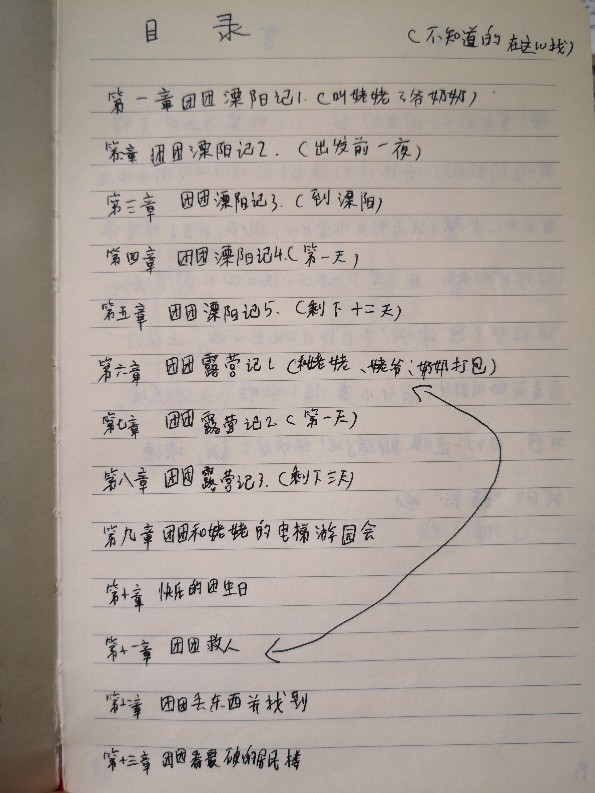 目 录
(不知道的在这儿找)
第一章团团溧阳记1.(叫姥姥 爷奶奶)
第二章 团团溧阳记2.(出发前一夜)
第三章 团团溧阳记3.(到溧阳)
第四章 团团溧阳记4.(第一天)
第五章 团团溧阳记5.(剩下十二天)
第六章 团团露营记1.(和姥姥、姥爷、奶奶打包)
第七章 团团露营记2.(第一天)
第八章 团团露营记3.(剩下三天)
第九章 团团和姥姥的电梯游园会
第十章 快乐的团生日
第十一章 团团救人
第十二章 团团丢东西并找到
第十三章 团团看最破的居民楼